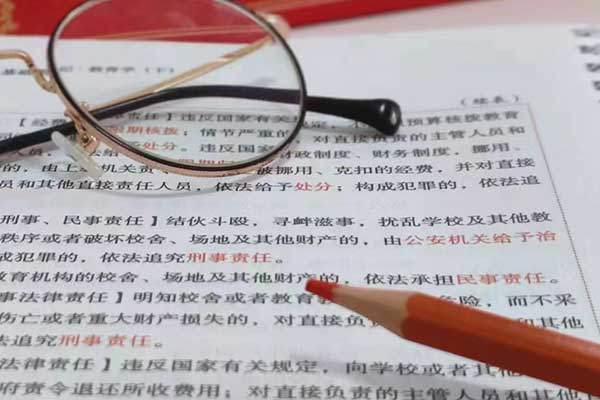 基础 记·教育学(下)
(续表)
【经费 责任】违反国家有关规定,不 预算核拨教育
期核拨;情节严重的,对直接负责的主管人员和
法给予处分。违反国家财政制度、财务制度,挪用、
的,由上 机关责 被挪用、克扣的经费,并对直接
员和其他直接责任人员,依法给予处分;构成犯罪的,依法追
刑事、民事责任】结伙斗殴,寻衅滋事,扰乱学校及其他教
秩序或者破坏校舍、场地及其他财产的,由公安机关给予治
成犯罪的,依法追究刑事责任。
教育机构的校舍、场地及其他财产的,依法承担民事责任。
事法律责任】明知校舍或者教育教 危险,而不采
伤亡或者重大财产损失的,对直接负责的 和其他
法追究刑事责任。
法律责任】违反国家有关规定,向学校或者其他
府责令退还所收费用;对直接负责的主管人员和其他